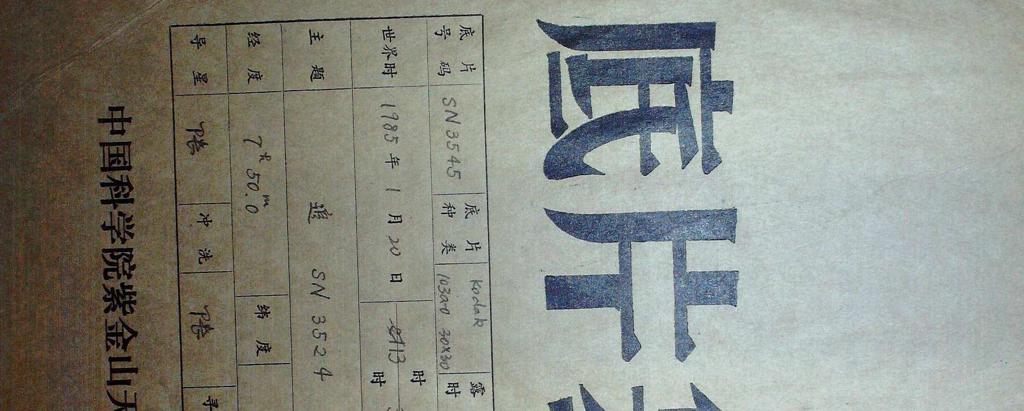 底片
底片号码 SN3545 底片种类 Kodak 103a-0 30×30 露时
世界时 1985年1月20日 13时 时
主题 追 SN 3524
经度 7ʰ50ᵐ.0 纬度
导星 冲洗 寻
中国科学院紫金山天